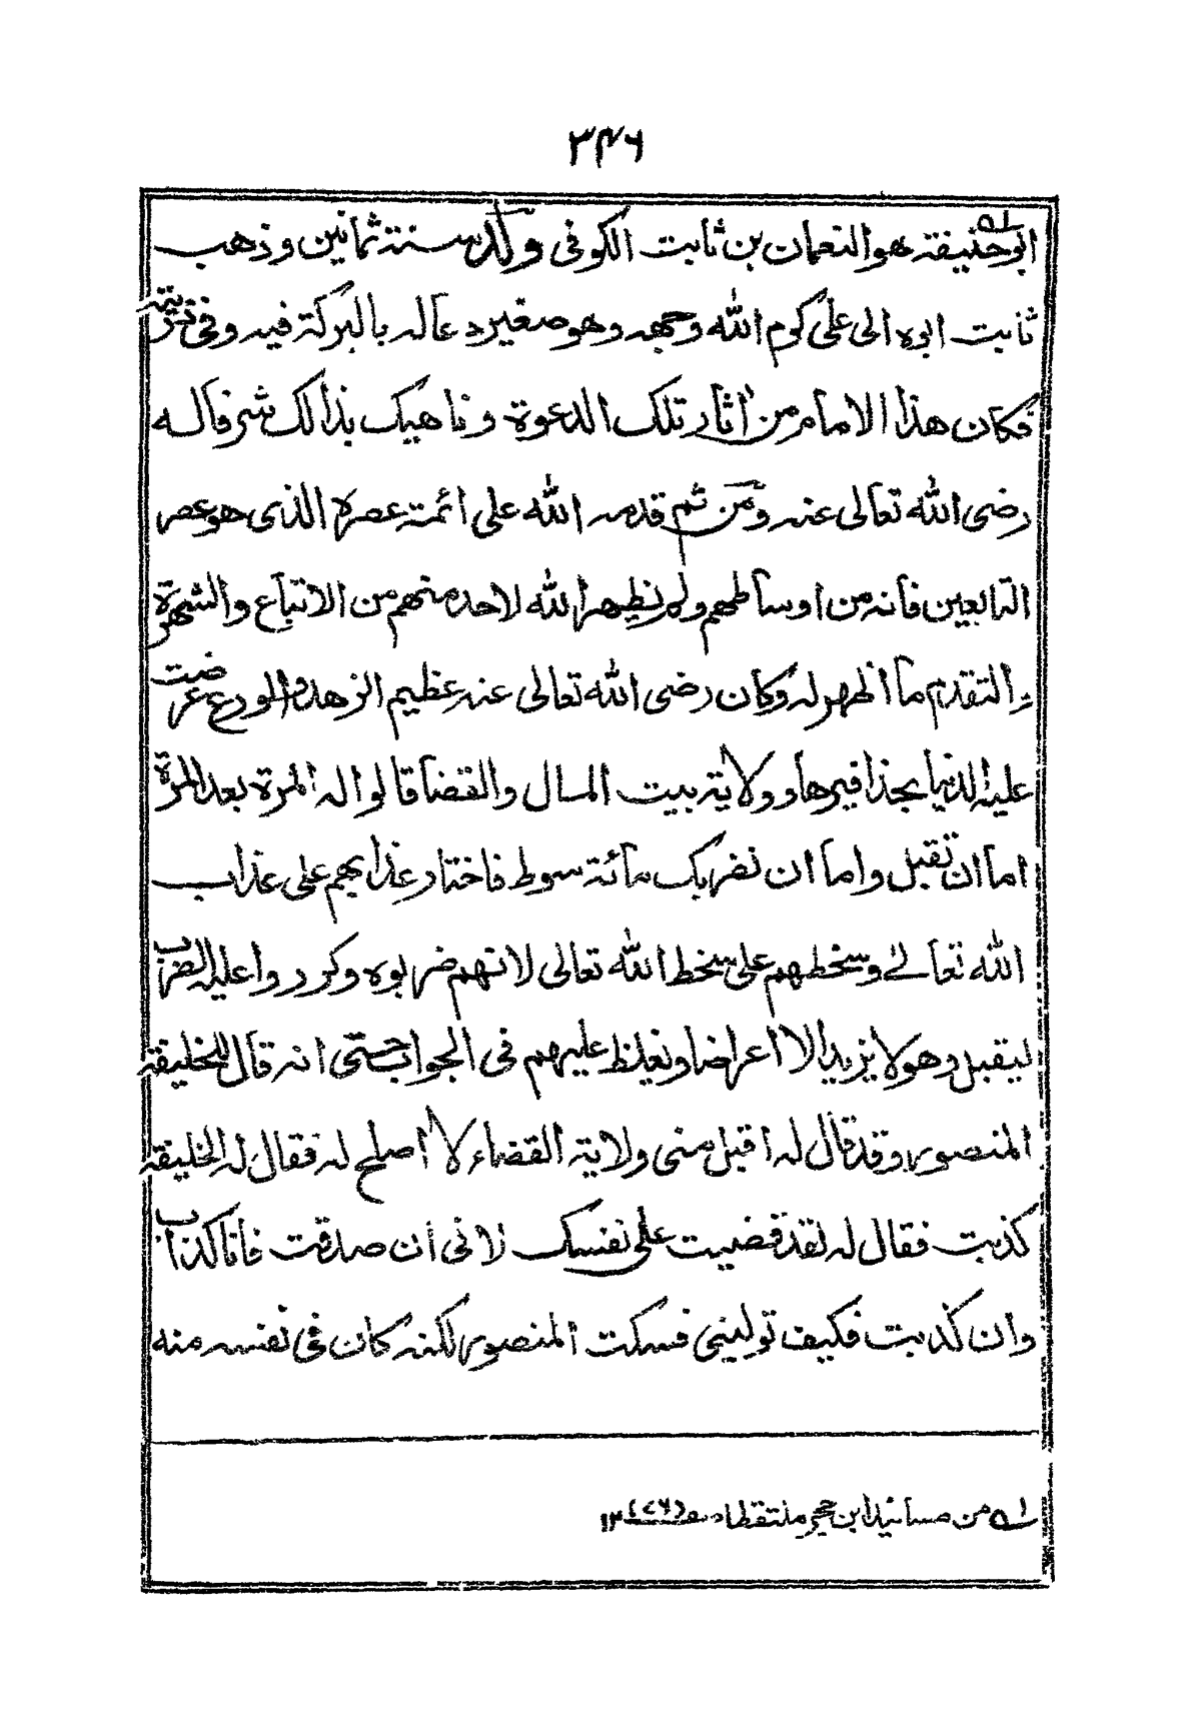 ٣٤٦
ابوحنيفة هو النعمان بن ثابت الكوفى ولد سنة ثمانين وذهب
ثابت ابوه الى على كرم الله وجهه وهو صغير دعا له بالبركة فيه وفى ذريته
فكان هذا الامام من أثار تلك الدعوة وناهيك بذالك شرفا له
رضى الله تعالى عنه ومن ثم قدمه الله على ائمة عصره الذى هو عصر
التابعين فانه من اوساطهم ولم يظهر الله لاحد منهم من الاتباع والشهرة
والتقدم ما اظهر له وكان رضى الله تعالى عنه عظيم الزهد والورع عرضت
عليه الدنيا بحذافيرها وولاية بيت المال والقضا قالوا له المرة بعد المرة
اما ان تقبل واما ان نضربك مائة سوط فاختار عذابهم على عذاب
الله تعالے وسخطهم على سخط الله تعالى لانهم ضربوه وكرروا عليه الضرب
ليقبل وهو لا يزيد الا اعراضا ويغلظ عليهم فى الجواب حتى انه قال للخليفة
المنصور وقد قال له اقبل منى ولاية القضاء لا اصلح له فقال له الخليفة
كذبت فقال له لقد قضيت على نفسك لانى ان صدقت فانا كذاب
وان كذبت فكيف تولينى فسكت المنصور لكنه كان فى نفسه منه
له من مسانيد ابن حجر ملتقطا صـ(٢٦) ١٢